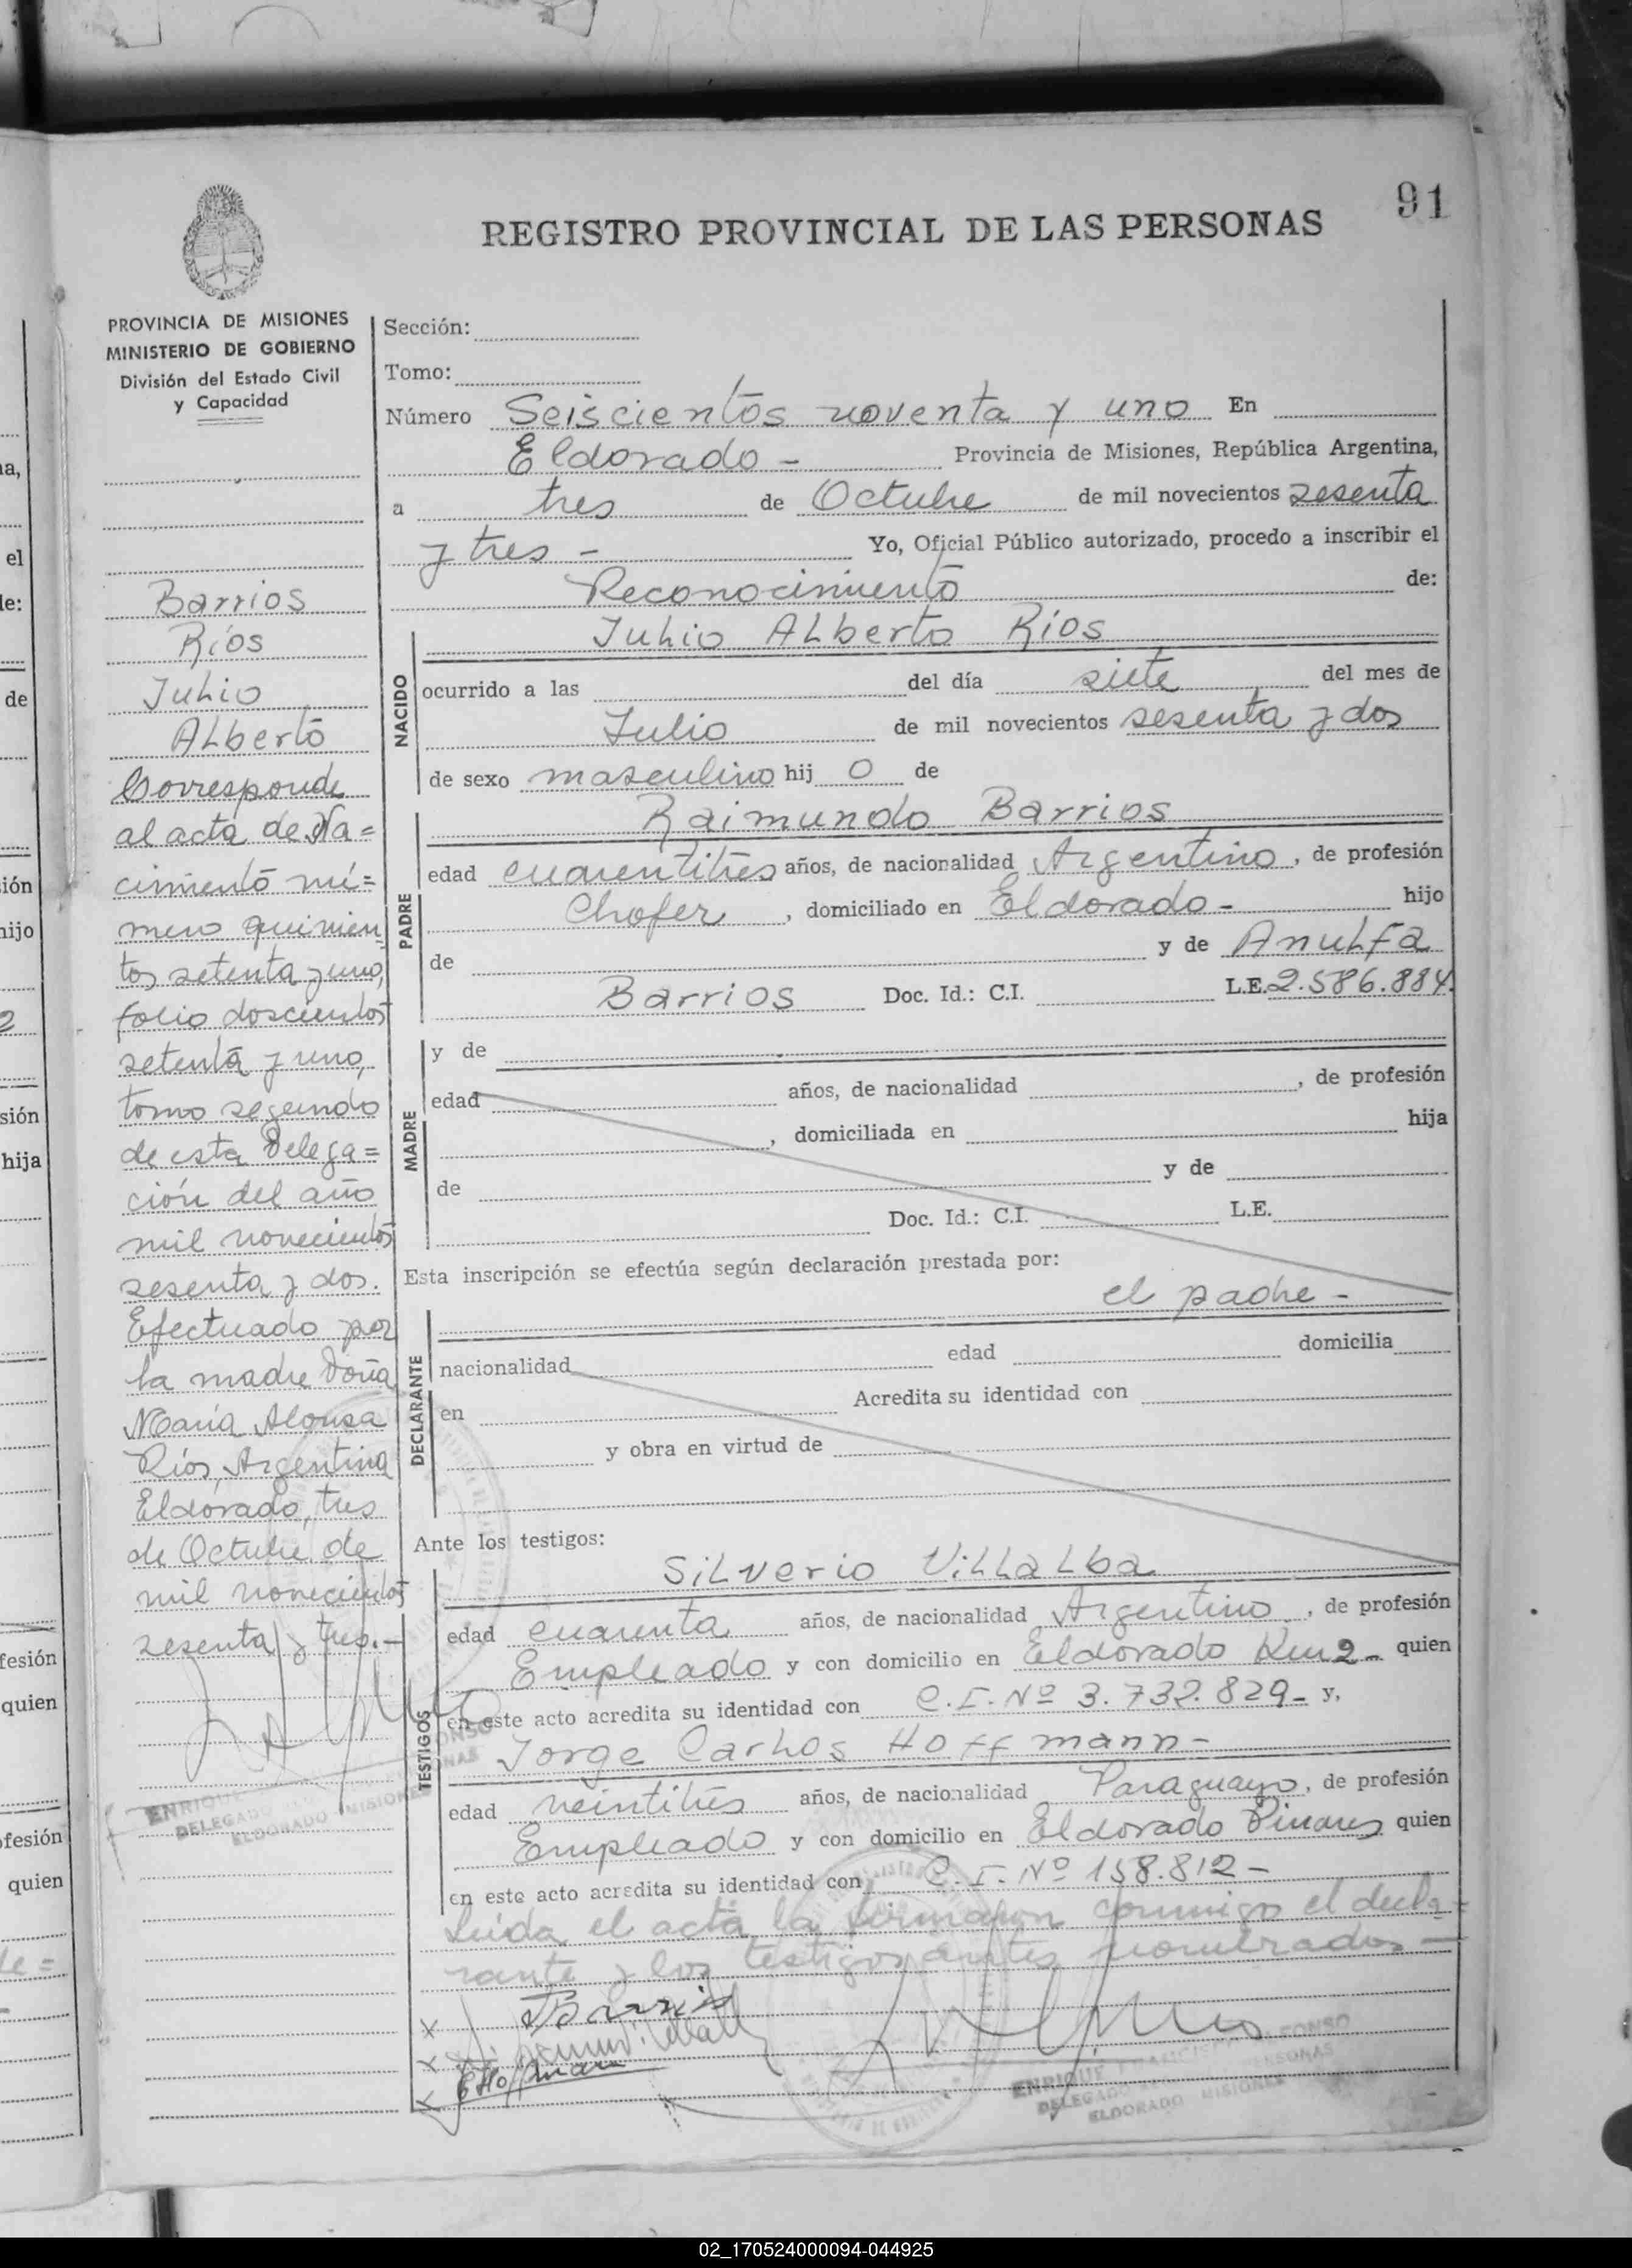 91
REGISTRO PROVINCIAL DE LAS PERSONAS
PROVINCIA DE MISIONES
MINISTERIO DE GOBIERNO
División del Estado Civil
y Capacidad
Barrios
Ríos
Julio
Alberto
Corresponde
al acta de Na=
cimiento nú=
mero quinien
tos setenta y uno,
folio doscientos
setenta y uno,
tomo segundo
de esta Delega=
ción del año
mil novecientos
sesenta y dos.
Efectuado por
la madre Doña
María Alonsa
Ríos, Argentina
Eldorado, tres
de Octubre de
mil novecientos
sesenta y tres.-
ENRIQUE
DELEGADO
ELDORADO MISIONES
Sección:
Tomo:
Número Seiscientos noventa y uno En
Eldorado - Provincia de Misiones, República Argentina,
a tres de Octubre de mil novecientos sesenta
y tres - Yo, Oficial Público autorizado, procedo a inscribir el
Reconocimiento de:
Julio Alberto Ríos
NACIDO
ocurrido a las del día siete del mes de
Julio de mil novecientos sesenta y dos
de sexo masculino hij o de
Raimundo Barrios
PADRE
edad cuarentitrés años, de nacionalidad Argentino, de profesión
Chofer, domiciliado en Eldorado - hijo
de y de Anulfa
Barrios Doc. Id.: C.I. L.E. 2.586.884.
MADRE
y de
edad años, de nacionalidad , de profesión
, domiciliada en hija
de y de
Doc. Id.: C.I. L.E.
Esta inscripción se efectúa según declaración prestada por:
el padre -
DECLARANTE
nacionalidad edad domicilia
en Acredita su identidad con
y obra en virtud de
Ante los testigos:
Silverio Villalba
TESTIGOS
edad cuarenta años, de nacionalidad Argentino, de profesión
Empleado y con domicilio en Eldorado Km 2 - quien
en este acto acredita su identidad con C.I. Nº 3.732.829 - y,
Jorge Carlos Hoffmann -
edad veintitrés años, de nacionalidad Paraguayo, de profesión
Empleado y con domicilio en Eldorado Pinares quien
en este acto acredita su identidad con C.I. Nº 158.812 -
Leída el acta la firmaron conmigo el decla=
rante y los testigos antes nombrados -
x Barrios
x
x
ENRIQUE
DELEGADO
ELDORADO MISIONES
02_170524000094-044925